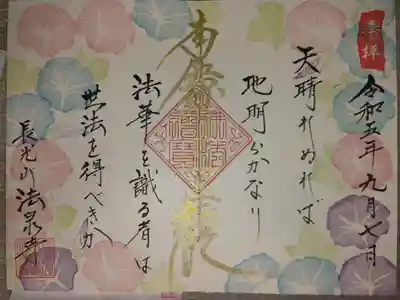 奉拝
令和五年九月七日
天晴れぬれば
地明らかなり
佛法僧寶
法華を識る者は
世法を得べきか
長光山 法泉寺